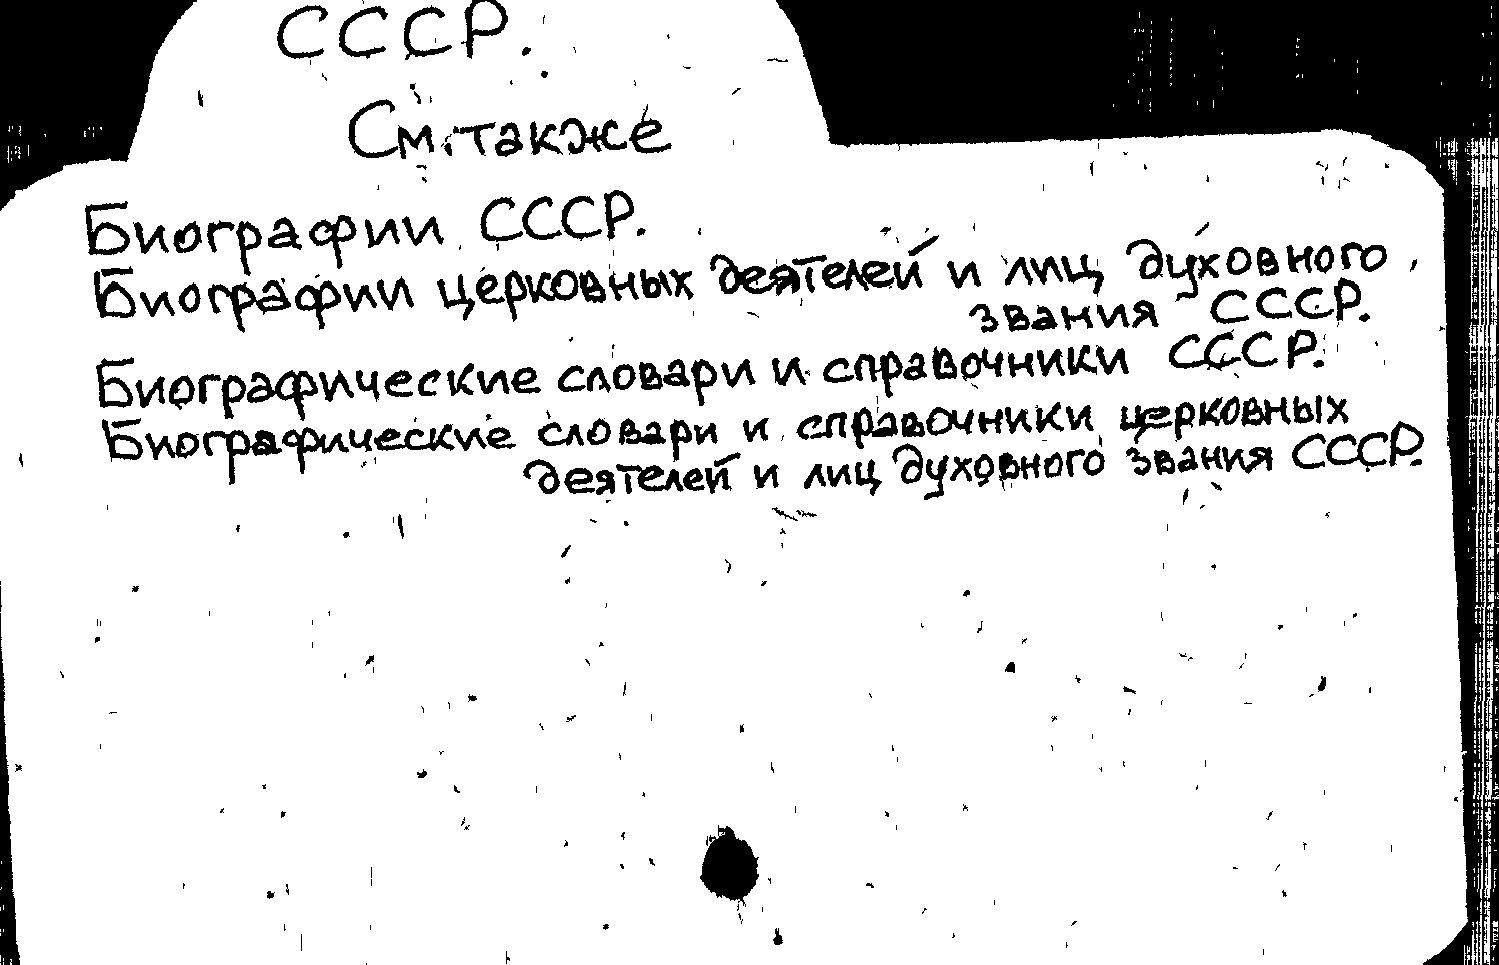 СССР.
См. также
Биографии СССР.
Биографии церковных деятелей и лиц духовного
звания СССР.
Биографические словари и справочники СССР.
Биографические словари и справочники церковных
деятелей и лиц духовного звания СССР.